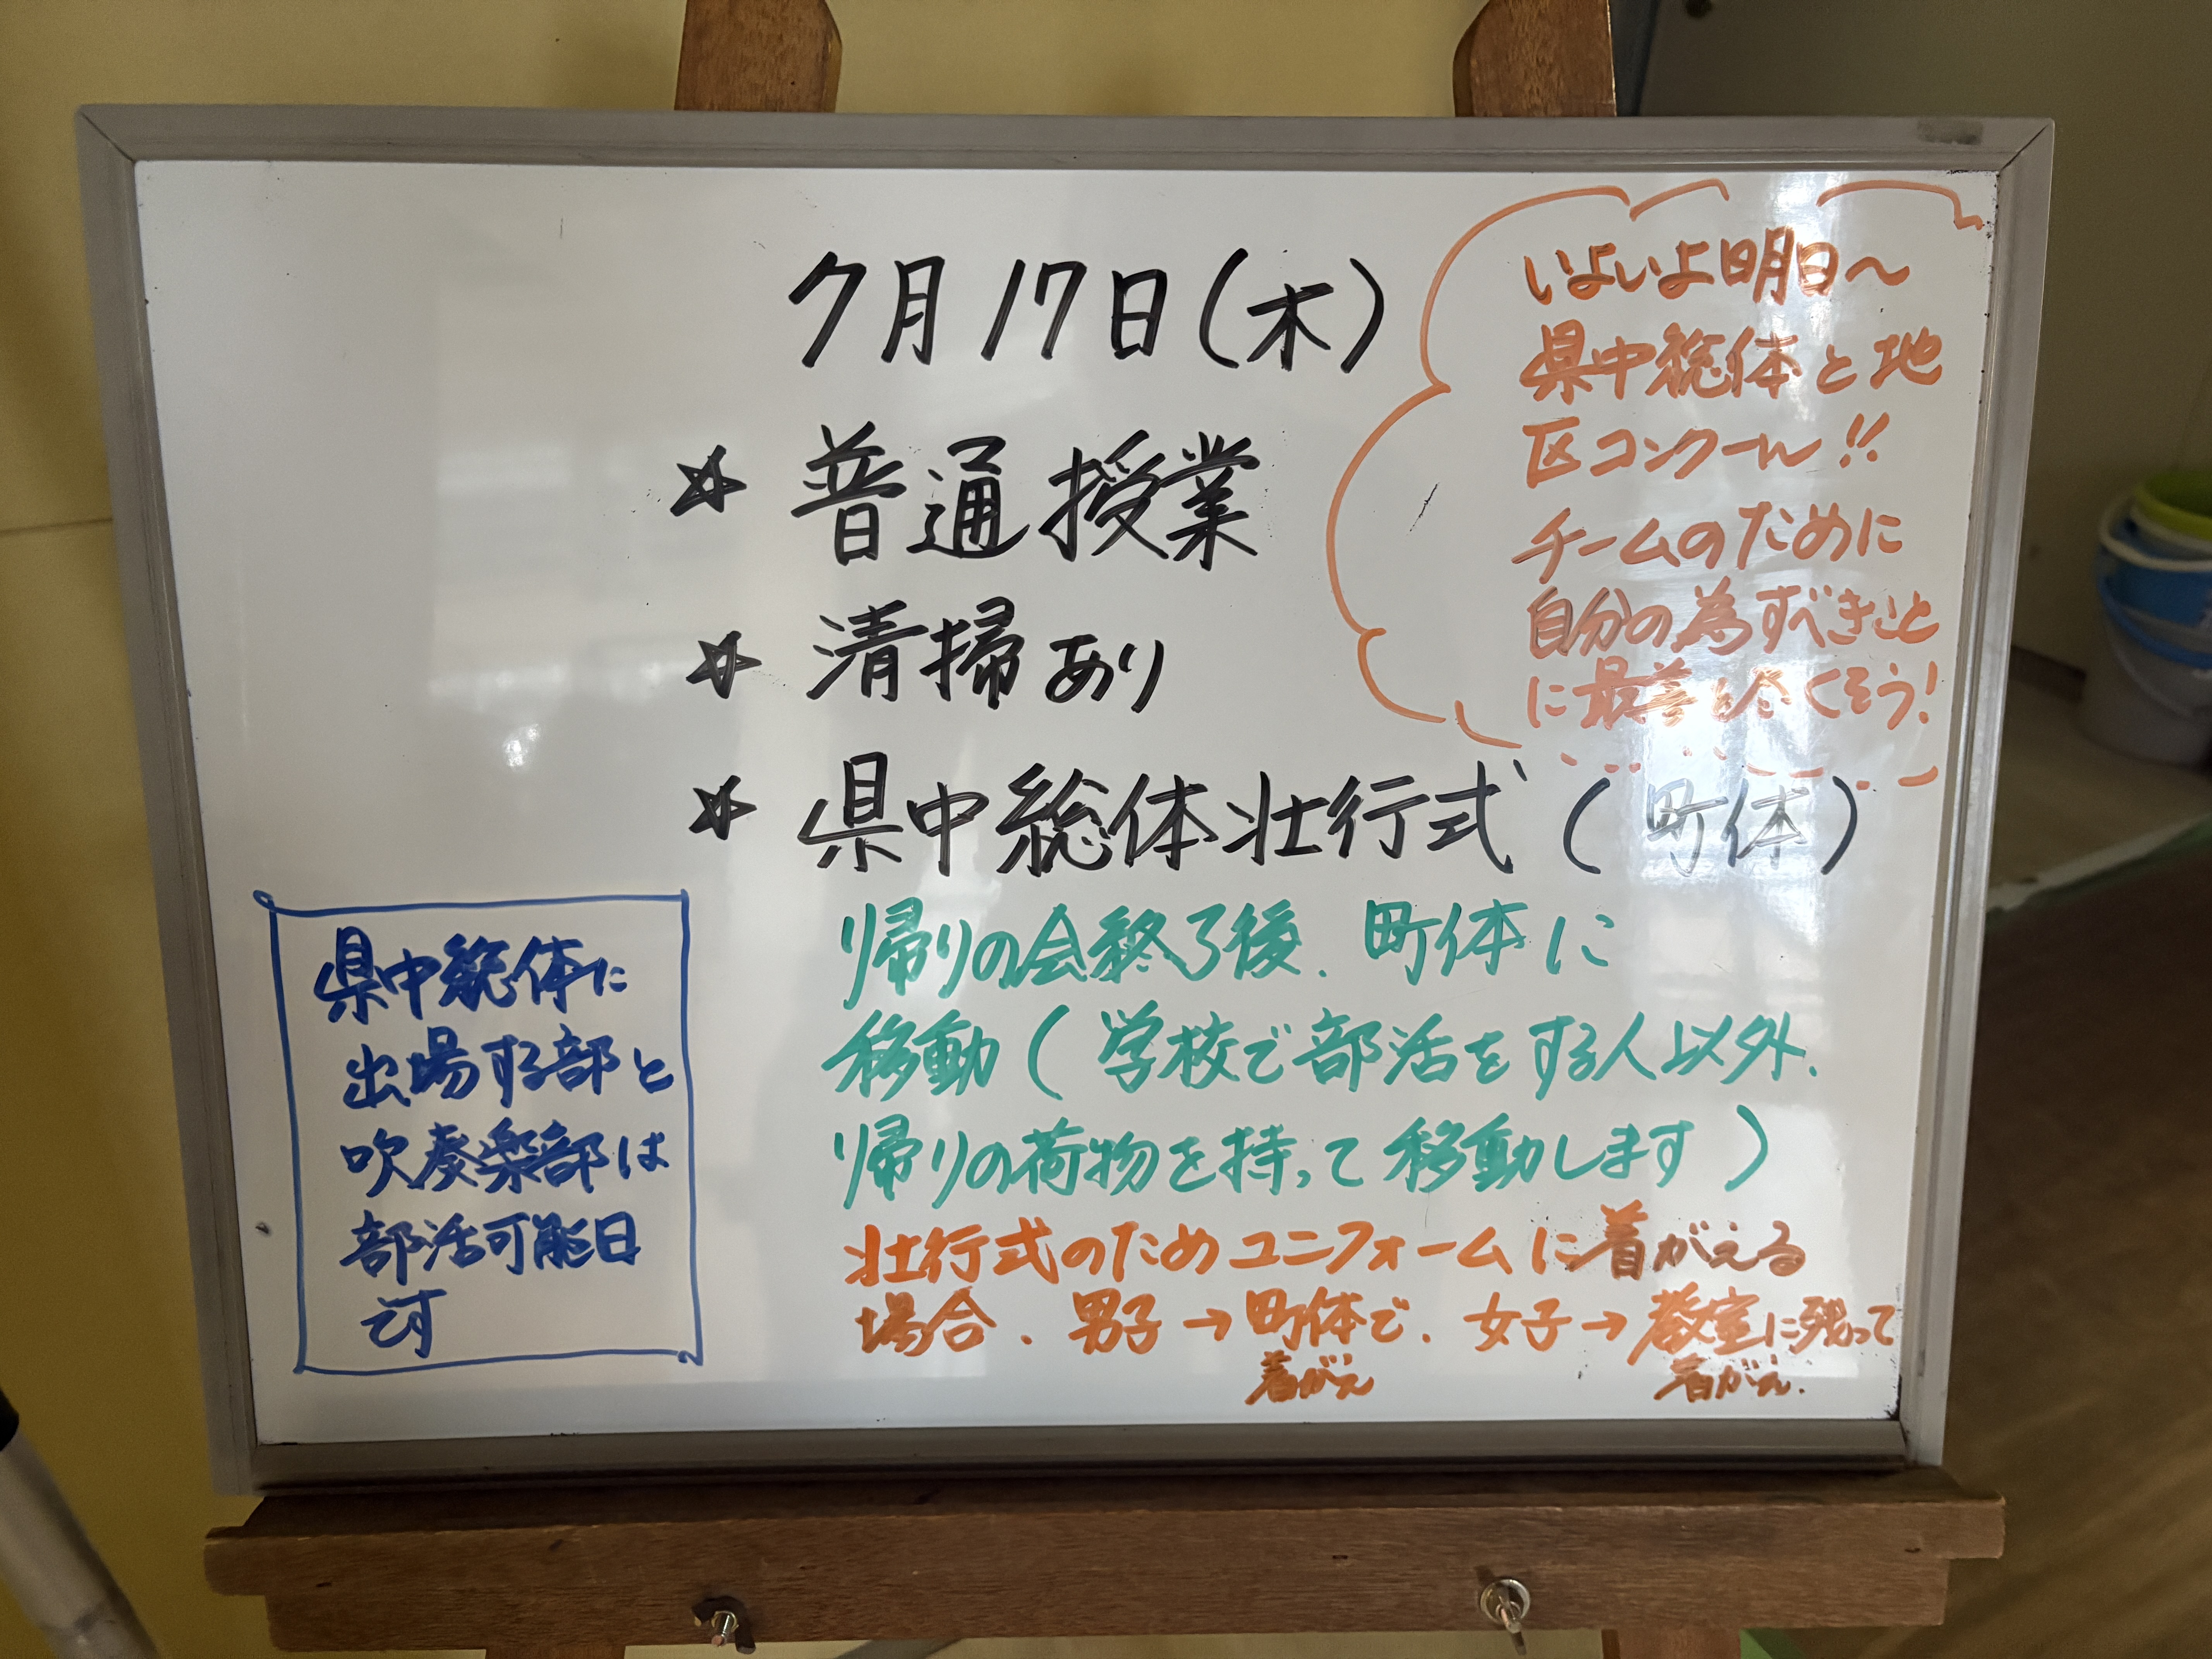 7月17日(木)
☆普通授業
☆清掃あり
☆県中総体壮行式(町体)
帰りの会終了後、町体に
移動(学校で部活をする人以外、
帰りの荷物を持って移動します)
壮行式のためユニフォームに着がえる
場合、男子→町体で、女子→教室に残って
着がえ 着がえ.
いよいよ明日~
県中総体と地
区コンクール!!
チームのために
自分の為すべきこと
に最善を尽くそう!
県中総体に
出場する部と
吹奏楽部は
部活可能日
です